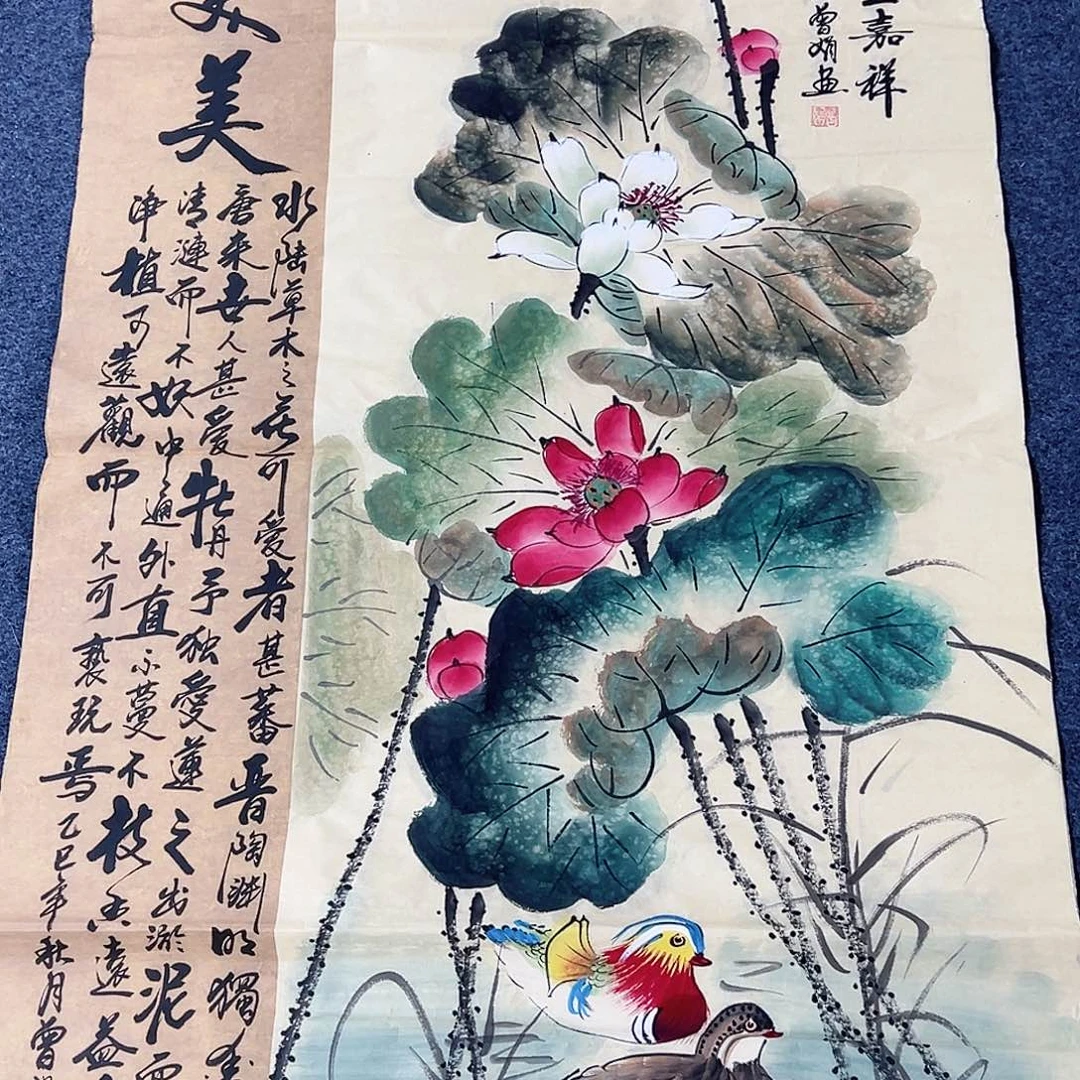 嘉祥
曾娟画
美
水陆草木之花可愛者甚蕃晋陶渊明獨
唐来世人甚愛牡丹予独愛蓮之出淤泥而
清漣而不妖中通外直不蔓不枝香遠益
净植可遠觀而不可亵玩焉乙巳年秋月曾